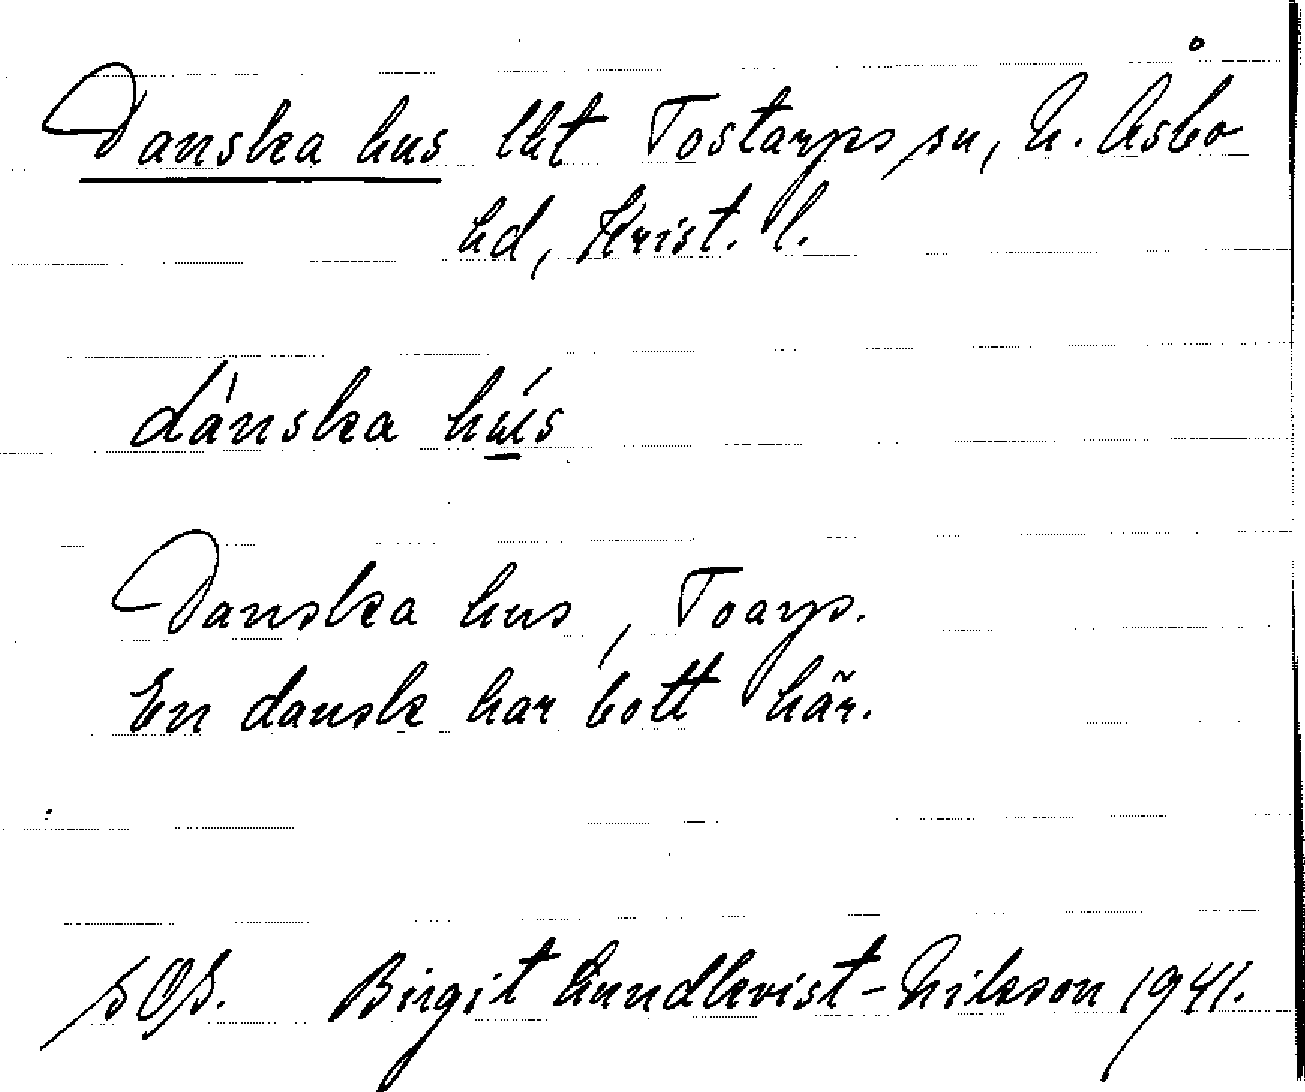 Danska hus lht Tostarps sn, N. Åsbo
hd, Krist. l.
dánska hús
Danska hus, Toarp.
En dansk har bott här.
Birgit Lundkvist-Nilsson 1941.